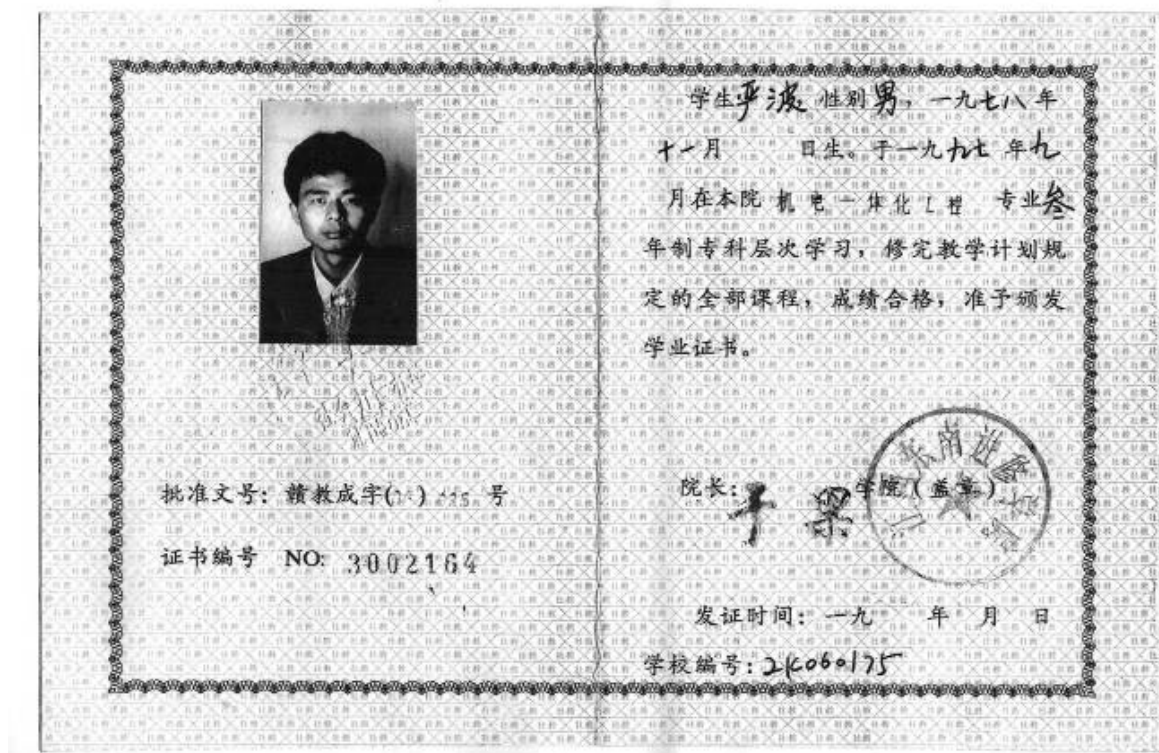 批准文号：赣教成字( ) 号
证书编号 NO: 3002164
学生严波 性别男，一九七八年
十一月 日生。于一九九七年九
月在本院 机电一体化工程 专业叁
年制专科层次学习，修完教学计划规
定的全部课程，成绩合格，准予颁发
学业证书。
院长： 学院（盖章）
江西东南进修学院
发证时间：一九 年 月 日
学校编号：2K060175